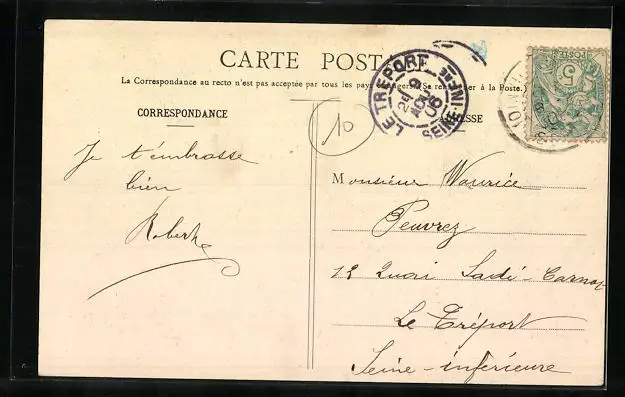 CARTE POSTALE
La Correspondance au recto n'est pas acceptée par tous les pays étrangers. (Se renseigner à la Poste.)
CORRESPONDANCE
ADRESSE
LE TREPORT
SEINE-INFRE
10
Je t'embrasse
bien
Robert
Monsieur Maurice
Peuvrez
12 Quai Sadi-Carnot
Le Tréport
Seine-inférieure